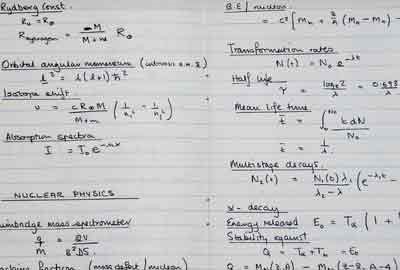 Rydberg Const.
R₀ = R∞
R_Hydrogen = M / (M + m) R∞
Orbital angular momentum
l² = l(l+1) ħ²
Isotope shift.
ν = c R∞ M / (M+m) (1/n₁² - 1/n₂²)
Absorption spectra
I = I₀ e^-nx
NUCLEAR PHYSICS
mass spectrometer
q/m = 2V / B²DS
fraction (mass defect / nucleon)
B.E / nucleon
= c² [Mn + (Mn - Mn) -
Transformation rates
N(t) = N₀ e^-λt
Half life
τ = loge2 / λ = 0.693 / λ
Mean life time
t̄ = ∫₀^N₀ t dN / N₀
t̄ = 1/λ
Multistage decays.
N₂(t) = N₁(0) λ₁ / (λ₂ - λ) (e^-λ₁t -
α - decay
Energy released E₀ = Tα (1 +
Stability against
Q = Tα + Tb = E₀
Q = (Z,A) - (Z-2, A-4)